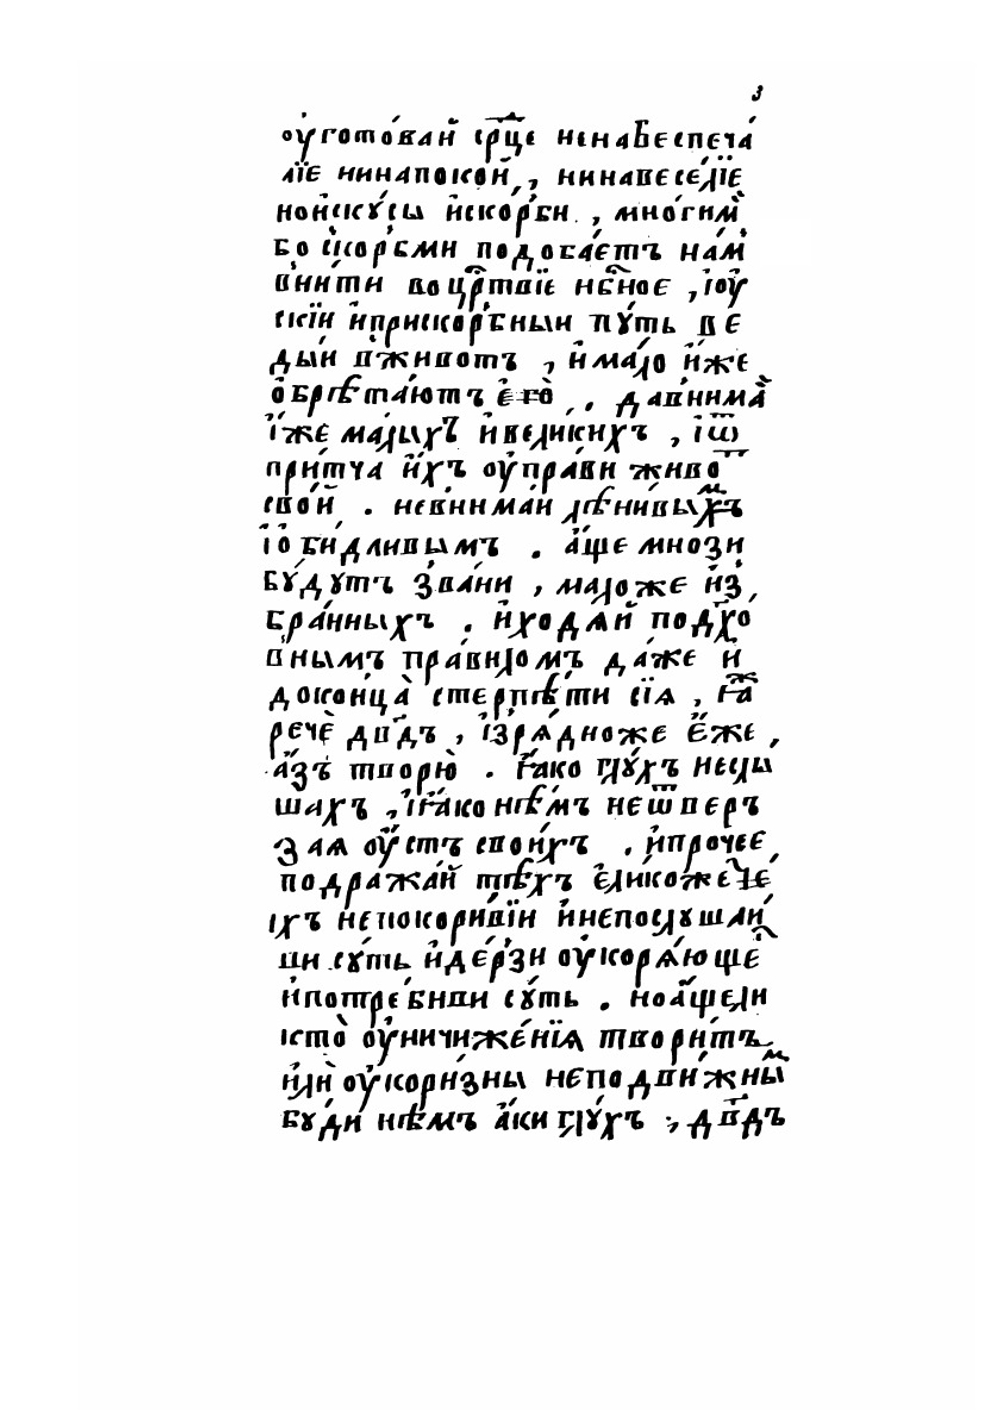 з
оуготовай срⷣце ненабеспеча́
лїе нинапокой , нинавесе́лїе
нойску́сы и҆ско́рби . мно́гимъ
бо ско́рбми подоба́етъ на́мъ
вни́ти воцрⷭ҇твїе нбⷭ҇ное , і҆оу҆́
скїи и҆приско́рбныи пу́ть ве
ды́и вживотъ , и҆ма́ло и҆́же
ѡ҆брѣта́ютъ є҆го̀ . да внима̀
и҆́же ма́лыхъ и҆вели́кихъ , і҆ѿ
при́тча и҆́хъ оу҆пра́ви живо
сво́й . невнима́и лѣни́выⷨхъ
і҆ѻби́дливымъ . а҆́ще мнози
бу́дутъ зва́ни , маложе и҆з̾
бра́нныхъ . и҆ходѧ́й подꙋхо́
внымъ пра́виломъ да́же и҆
доконца̀ стерпѣ́ти сїѧ , ꙗ҆́ⷤ
речѐ двⷣдъ , и҆зрѧ́дноже є҆́же ,
а҆́зъ творю̀ . ꙗ҆́ко глу́хъ неслы
шахъ , і҆ꙗ҆́ко нѣ́мъ неѿвер
заѧ оу҆́стъ свои́хъ . и҆прочее ,
подража́й тѣ́хъ є҆ли́коже че́
іхъ непокори́вїи и҆непослушли́
ви су́ть и҆де́рзи оу҆корѧ́юще
и҆потре́бниви су́ть . ноа҆́щели
істо̀ оу҆ничиже́нїѧ твори́тъ
и҆лѝ оу҆кори́зны неподви́жныⷨ
бу́ди нѣ́мъ а҆́ки глу́хъ , двⷣдъ